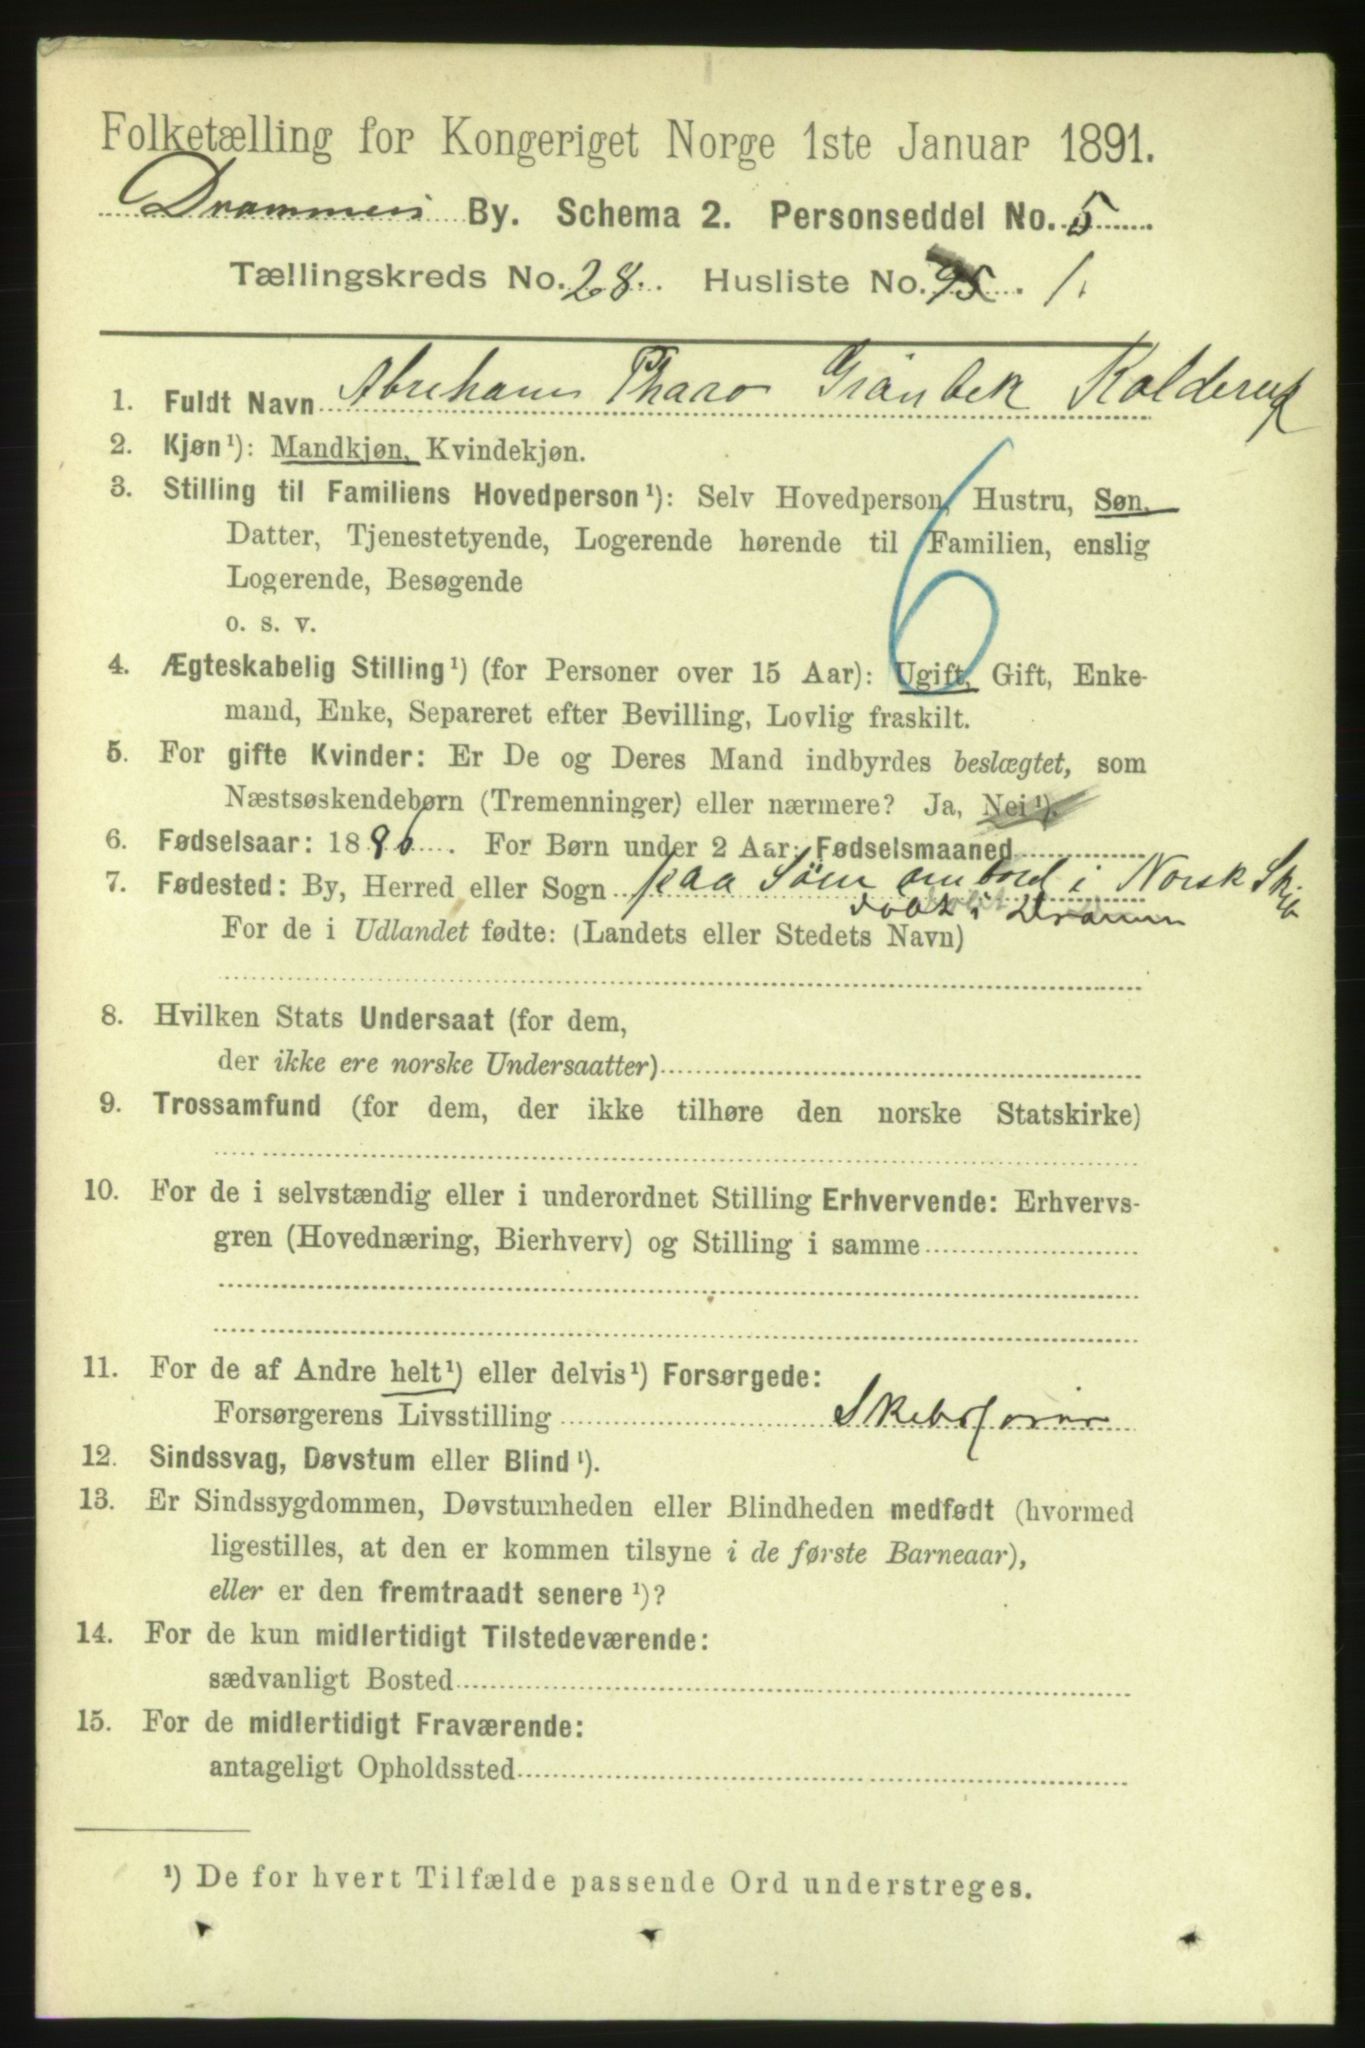 Folketælling for Kongeriget Norge 1ste Januar 1891.
Drammens By. Schema 2. Personseddel No. 5
Tællingskreds No. 28. Husliste No. 95. 1.
1. Fuldt Navn Abraham Pharo Grønbek Kolderup
2. Kjøn¹): Mandkjøn, Kvindekjøn.
3. Stilling til Familiens Hovedperson¹): Selv Hovedperson, Hustru, Søn,
Datter, Tjenestetyende, Logerende hørende til Familien, enslig
Logerende, Besøgende
o. s. v.
6
4. Ægteskabelig Stilling¹) (for Personer over 15 Aar): Ugift, Gift, Enke-
mand, Enke, Separeret efter Bevilling, Lovlig fraskilt.
5. For gifte Kvinder: Er De og Deres Mand indbyrdes beslægtet, som
Næstsøskendebørn (Tremenninger) eller nærmere? Ja, Nei¹).
6. Fødselsaar: 1886. For Børn under 2 Aar: Fødselsmaaned
7. Fødested: By, Herred eller Sogn paa Söen ombord i Norsk Skib
døbt i Dramn
For de i Udlandet fødte: (Landets eller Stedets Navn)
8. Hvilken Stats Undersaat (for dem,
der ikke ere norske Undersaatter)
9. Trossamfund (for dem, der ikke tilhøre den norske Statskirke)
10. For de i selvstændig eller i underordnet Stilling Erhvervende: Erhvervs-
gren (Hovednæring, Bierhverv) og Stilling i samme
11. For de af Andre helt¹) eller delvis¹) Forsørgede:
Forsørgerens Livsstilling Skibsfører
12. Sindssvag, Døvstum eller Blind¹).
13. Er Sindssygdommen, Døvstumheden eller Blindheden medfødt (hvormed
ligestilles, at den er kommen tilsyne i de første Barneaar),
eller er den fremtraadt senere¹)?
14. For de kun midlertidigt Tilstedeværende:
sædvanligt Bosted
15. For de midlertidigt Fraværende:
antageligt Opholdssted
¹) De for hvert Tilfælde passende Ord understreges.